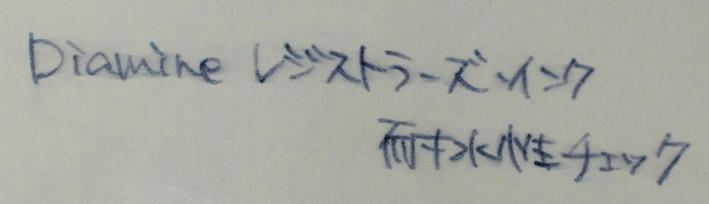 Diamine レジストラーズインク
耐水性チェック